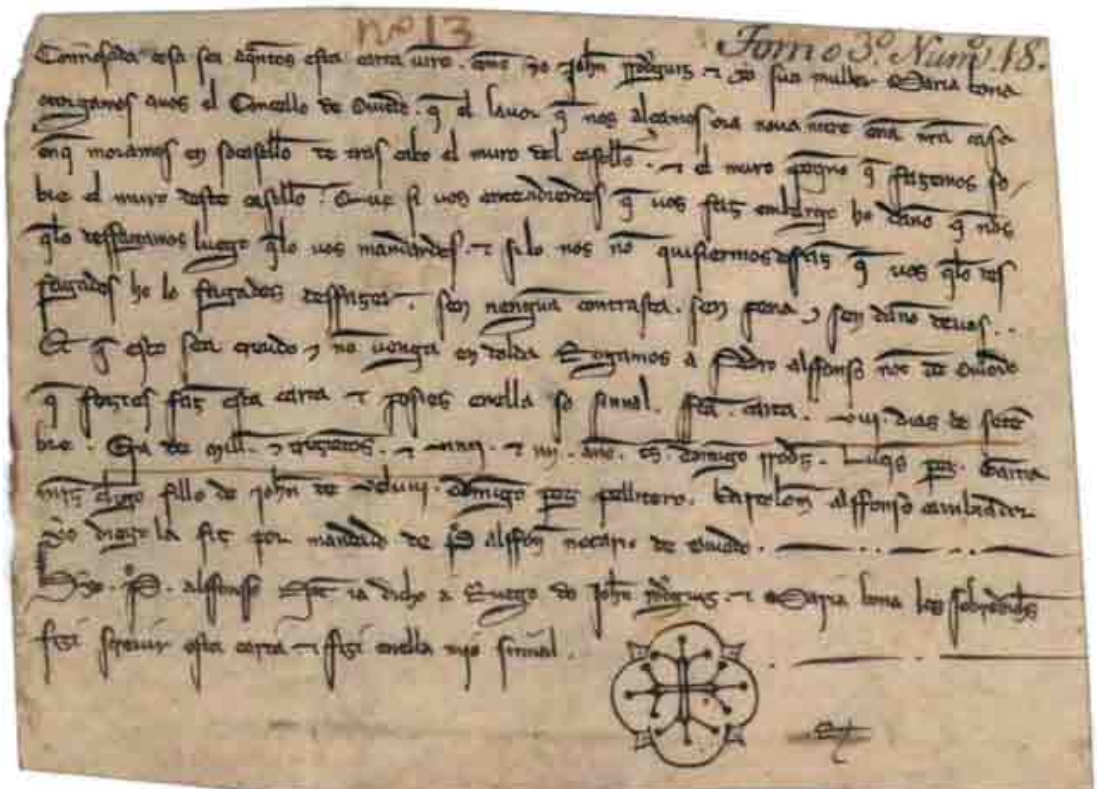 nº 13
Tomo 3º. Numº 18.
Connosçuda cosa sea aqntos esta carta uiren. que yo Johan rrodguiz ⁊ yo sua muller Maria bona
otorgamos auos el Conçello de Ouiedo. q̄ el lauor q̄ nos alçamos ora noua mētre ena nr̄a casa
enq̄ moramos en socastiello de tras cabo el muro del castiello. ⁊ el muro q̄ fazemos so
bre el muro deste castiello. Que si uos entendierdes q̄ uos faz embargo ho dano q̄ nos
q̄lo desfaçamos luego q̄lo uos mandardes. ⁊ silo nos nō quisiermos desfaz q̄ uos q̄lo des
fagades ho lo fagades desfazer. sen nengua contrasta. sen pena ⁊ sen dano deuos..
Et q̄ esto sea creudo ⁊ nō uenga en dolda Rogamos a Pedro alffonso not de Ouiedo
q̄ fezies faz esta carta ⁊ posies enella so sinnal. fca. carta. dias de setē
bre. Era de mill. ⁊ trezētos. ⁊ ⁊ iiij. ano. ts. domīgo rrodz. pz. Garcia
fillo de Johan de domīgo pz pellitero. bartolome alffonso cambiador
Yo diego la fiz por mandado de P alffon notario de Ouiedo.
Yo. P. alffonso not ia dicho a Ruego de Johan rrodguiz. ⁊ Maria bona los sobredchos
fizi screuir esta carta ⁊ fizi enella myo sinnal.